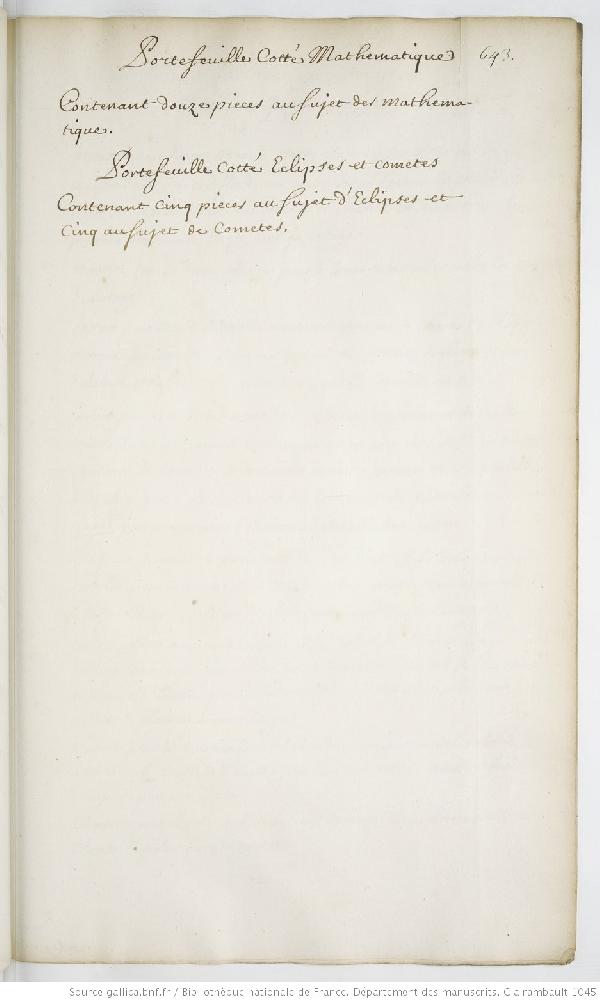 Portefeuille Cotté Mathematique 643.
Contenant douze pieces au sujet des mathema-
tiques.
Portefeuille Cotté Eclipses et cometes
Contenant cinq pieces au sujet d'Eclipses et
Cinq au sujet de Cometes.
Source gallica.bnf.fr / Bibliothèque nationale de France. Département des manuscrits. Clairambault 1045